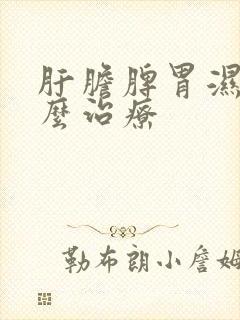 肝膽脾胃濕
麼治療
勒布朗小詹姆